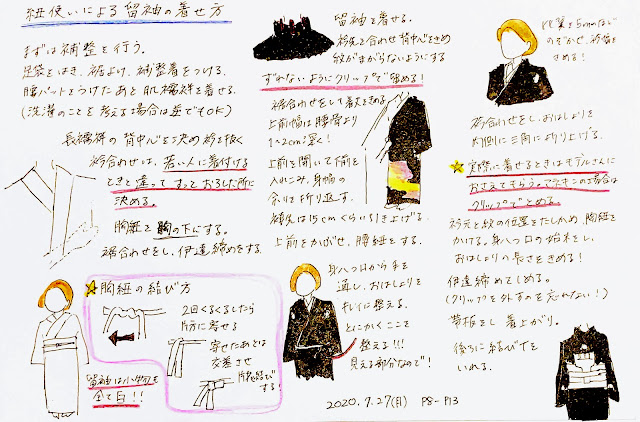 紐使いによる留袖の着せ方
まずは補整を行う。
足袋をはき、裾よけ、補整着をつける。
腰パットをつけたあと肌襦袢を着せる。
(洗濯のことを考える場合は逆でもOK)
長襦袢の背中心を決め衿を抜く
衿合わせは、若い人に着付ける
ときと違ってすっとおろした所に
決める。
胸紐を胸の下にする。
裾合わせをし、伊達締めをする。
☆胸紐の結び方
2回くるくるしたら
片方に寄せる
寄せたあとは
交差させ
片花結び
する!
留袖は小物も
全て白!!
留袖を着せる。
衿先を合わせ背中心をきめ
紋がまがらないようにする
ずれないようにクリップで留める!
裾合わせをして着丈をきめる
上前幅は腰骨より
1〜2cm深く!
上前を開いて下前を
入れこみ、身幅の
余りを折り返す。
褄先は15cmくらい引き上げる。
上前をかぶせ、腰紐をする。
身八つ口から手を
通し、おはしょりを
キレイに整える。
とにかくここを
整える!!
見える部分なので!
2020.7.27(月) P8-P13
比翼を5mmほど
のぞかせ、衿幅を
きめる!
衿合わせをし、おはしょりを
内側に三角に折り上げる。
☆実際に着せるときはモデルさんに
おさえてもらう。できそこの場合は
クリップでとめる。
衿元と紋の位置をたしかめ、胸紐を
かける。身八つ口の始末をし、
おはしょりの長さをきめる!
伊達締めてしめる。
(クリップを外すのを忘れない!)
帯板をし着上がり。
後ろに結び下を
いれる。